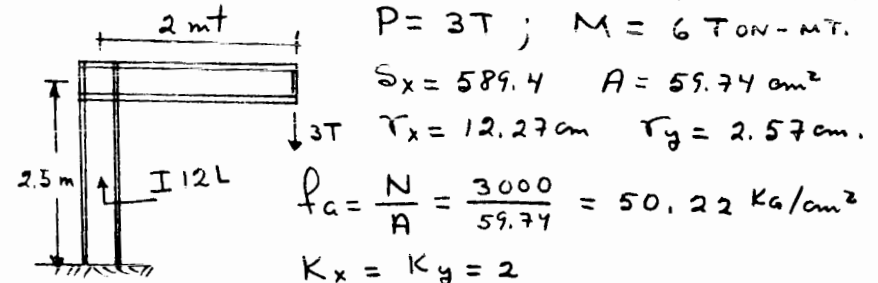 2 mt
P = 3T ; M = 6 TON-MT.
Sx = 589.4 A = 59.74 cm²
3T rx = 12.27 cm ry = 2.57 cm.
2.5 m I 12L fa = N/A = 3000/59.74 = 50.22 KG/cm²
Kx = Ky = 2